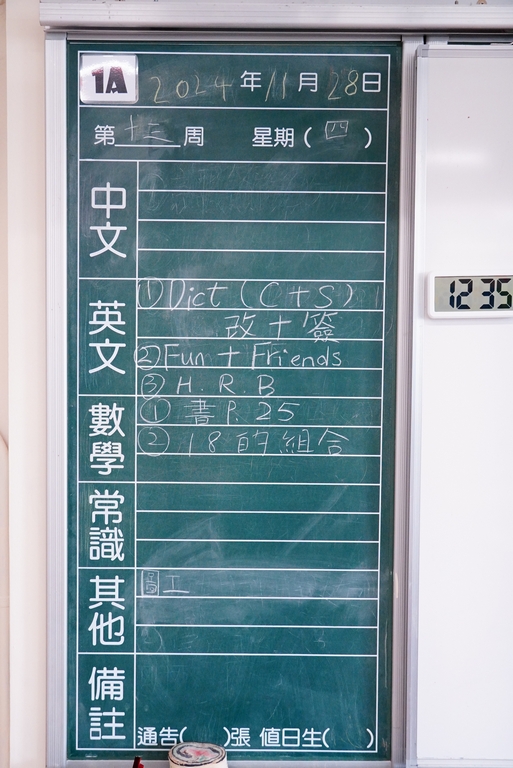 1A 2024年11月28日
第十三周 星期(四)
中文
英文
①Dict (C+S)
改+簽
②Fun + Friends
③H.R.B
數學
①書P.25
②18的組合
常識
其他
圖工
備註
通告( )張 值日生( )
12 35